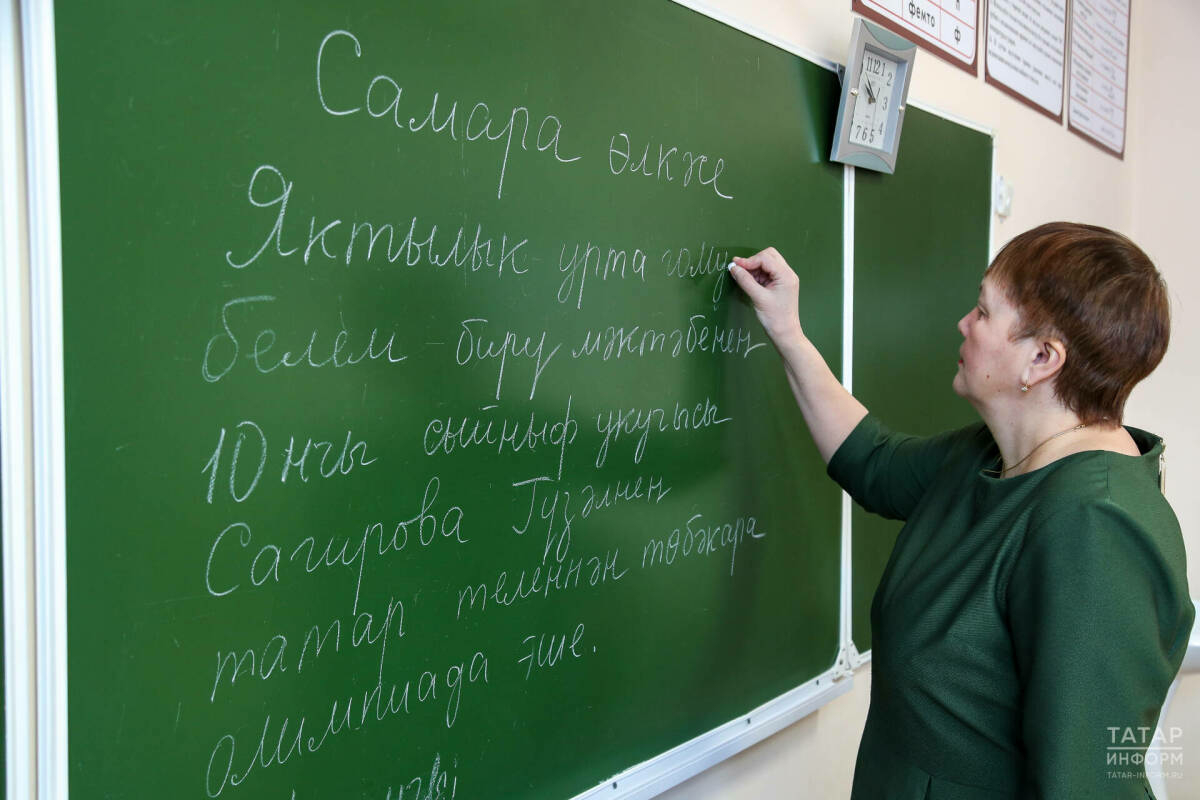 Самара өлкәсе
Яктылык урта гому
белем - бирү мәктәбенең
10 нчы сыйныф укучысы
Сагирова Гүзәлнең
татар теленнән төбәкара
олимпиада эше.
фемто ф
11 12 1
2
3
4
7 6 5
ТАТАР
ИНФОРМ
TATAR-INFORM.RU